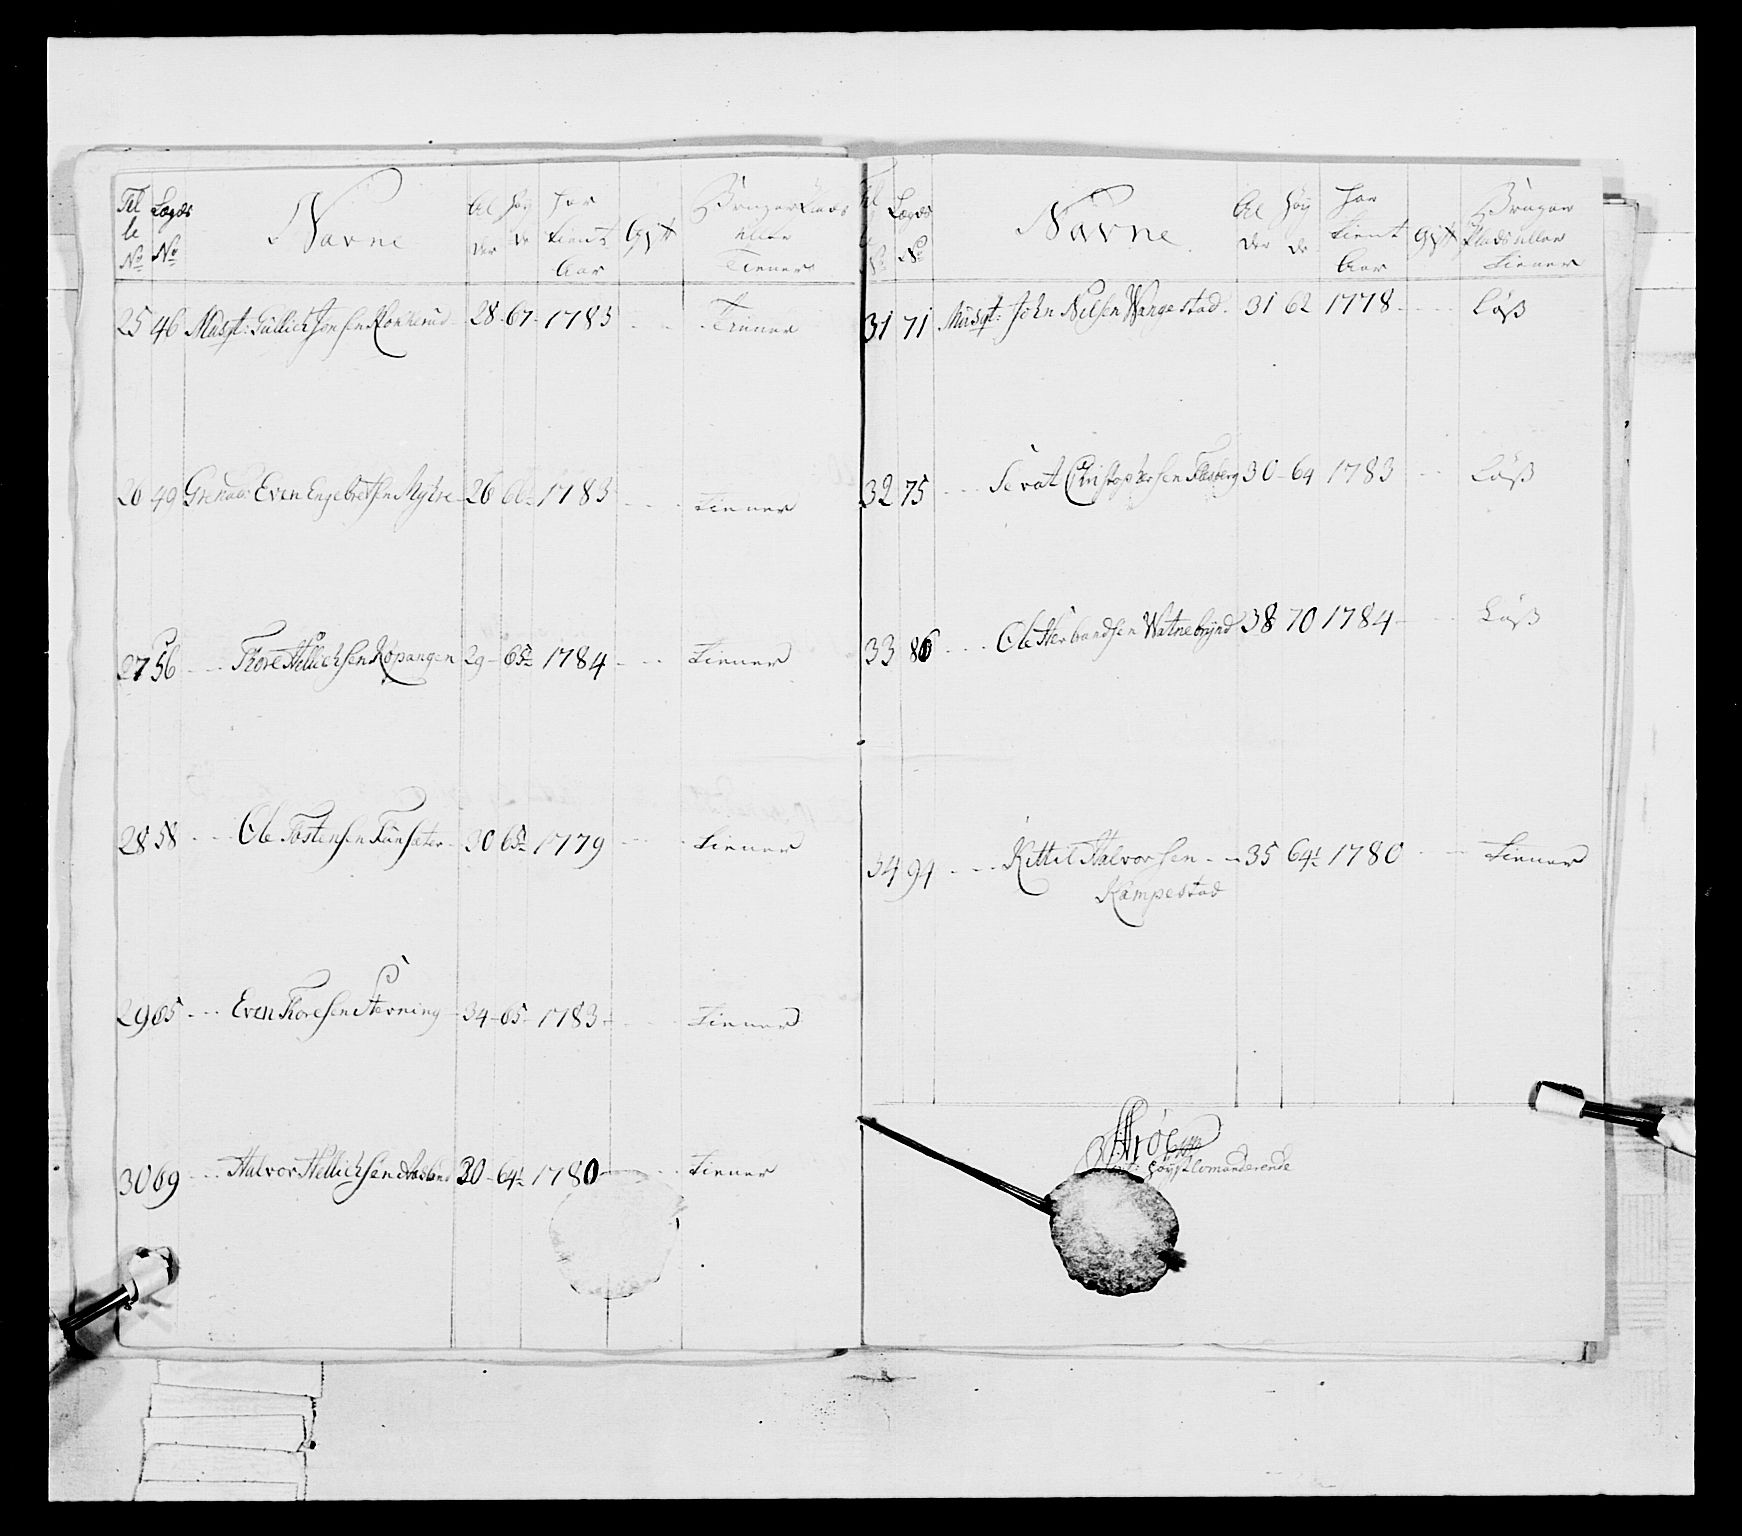 Tal le No Lægds No Navne Al der Høy de har tient Aar Gift Bruger Plads eller Tiener
25 46 Musqt: Gullich Jonsen 28 - 67 - 1783 - - - Tiener
26 49 Grenad: Even Engebretsen Myhre - 26 1783 - - - Tiener
27 56 - - - Thore Hellichsen Kopangen 29 - 65 1/2 1784 - - - Tiener
28 58 - - - Ole Tostensen - 30 65 1/2 1779 - - - Tiener
29 65 - - - Even Thoresen - 34 - 65 - 1783 - - - Tiener
30 69 - - - Halvor Hellichsen 30 - 64 1/2 1780 - - - Tiener
Tal le No Lægds No Navne Al der Høy de har tient Aar gift Bruger Plads eller Tiener
31 71 Musqt: John Nilsen Wangestad - 31 62 1778 - - - Løß
32 75 - - - Sevat Christophersen Flesberg 30 - 64 1783 - - - Løß
33 86 - - - Ole Herbandsen Watnebrÿnd 38 70 1784 - - - Løß
34 94 - - - Kittil Halvorsen - - 35 64 1/2 1780 - - - Tiener
Kampestad
Comanderende